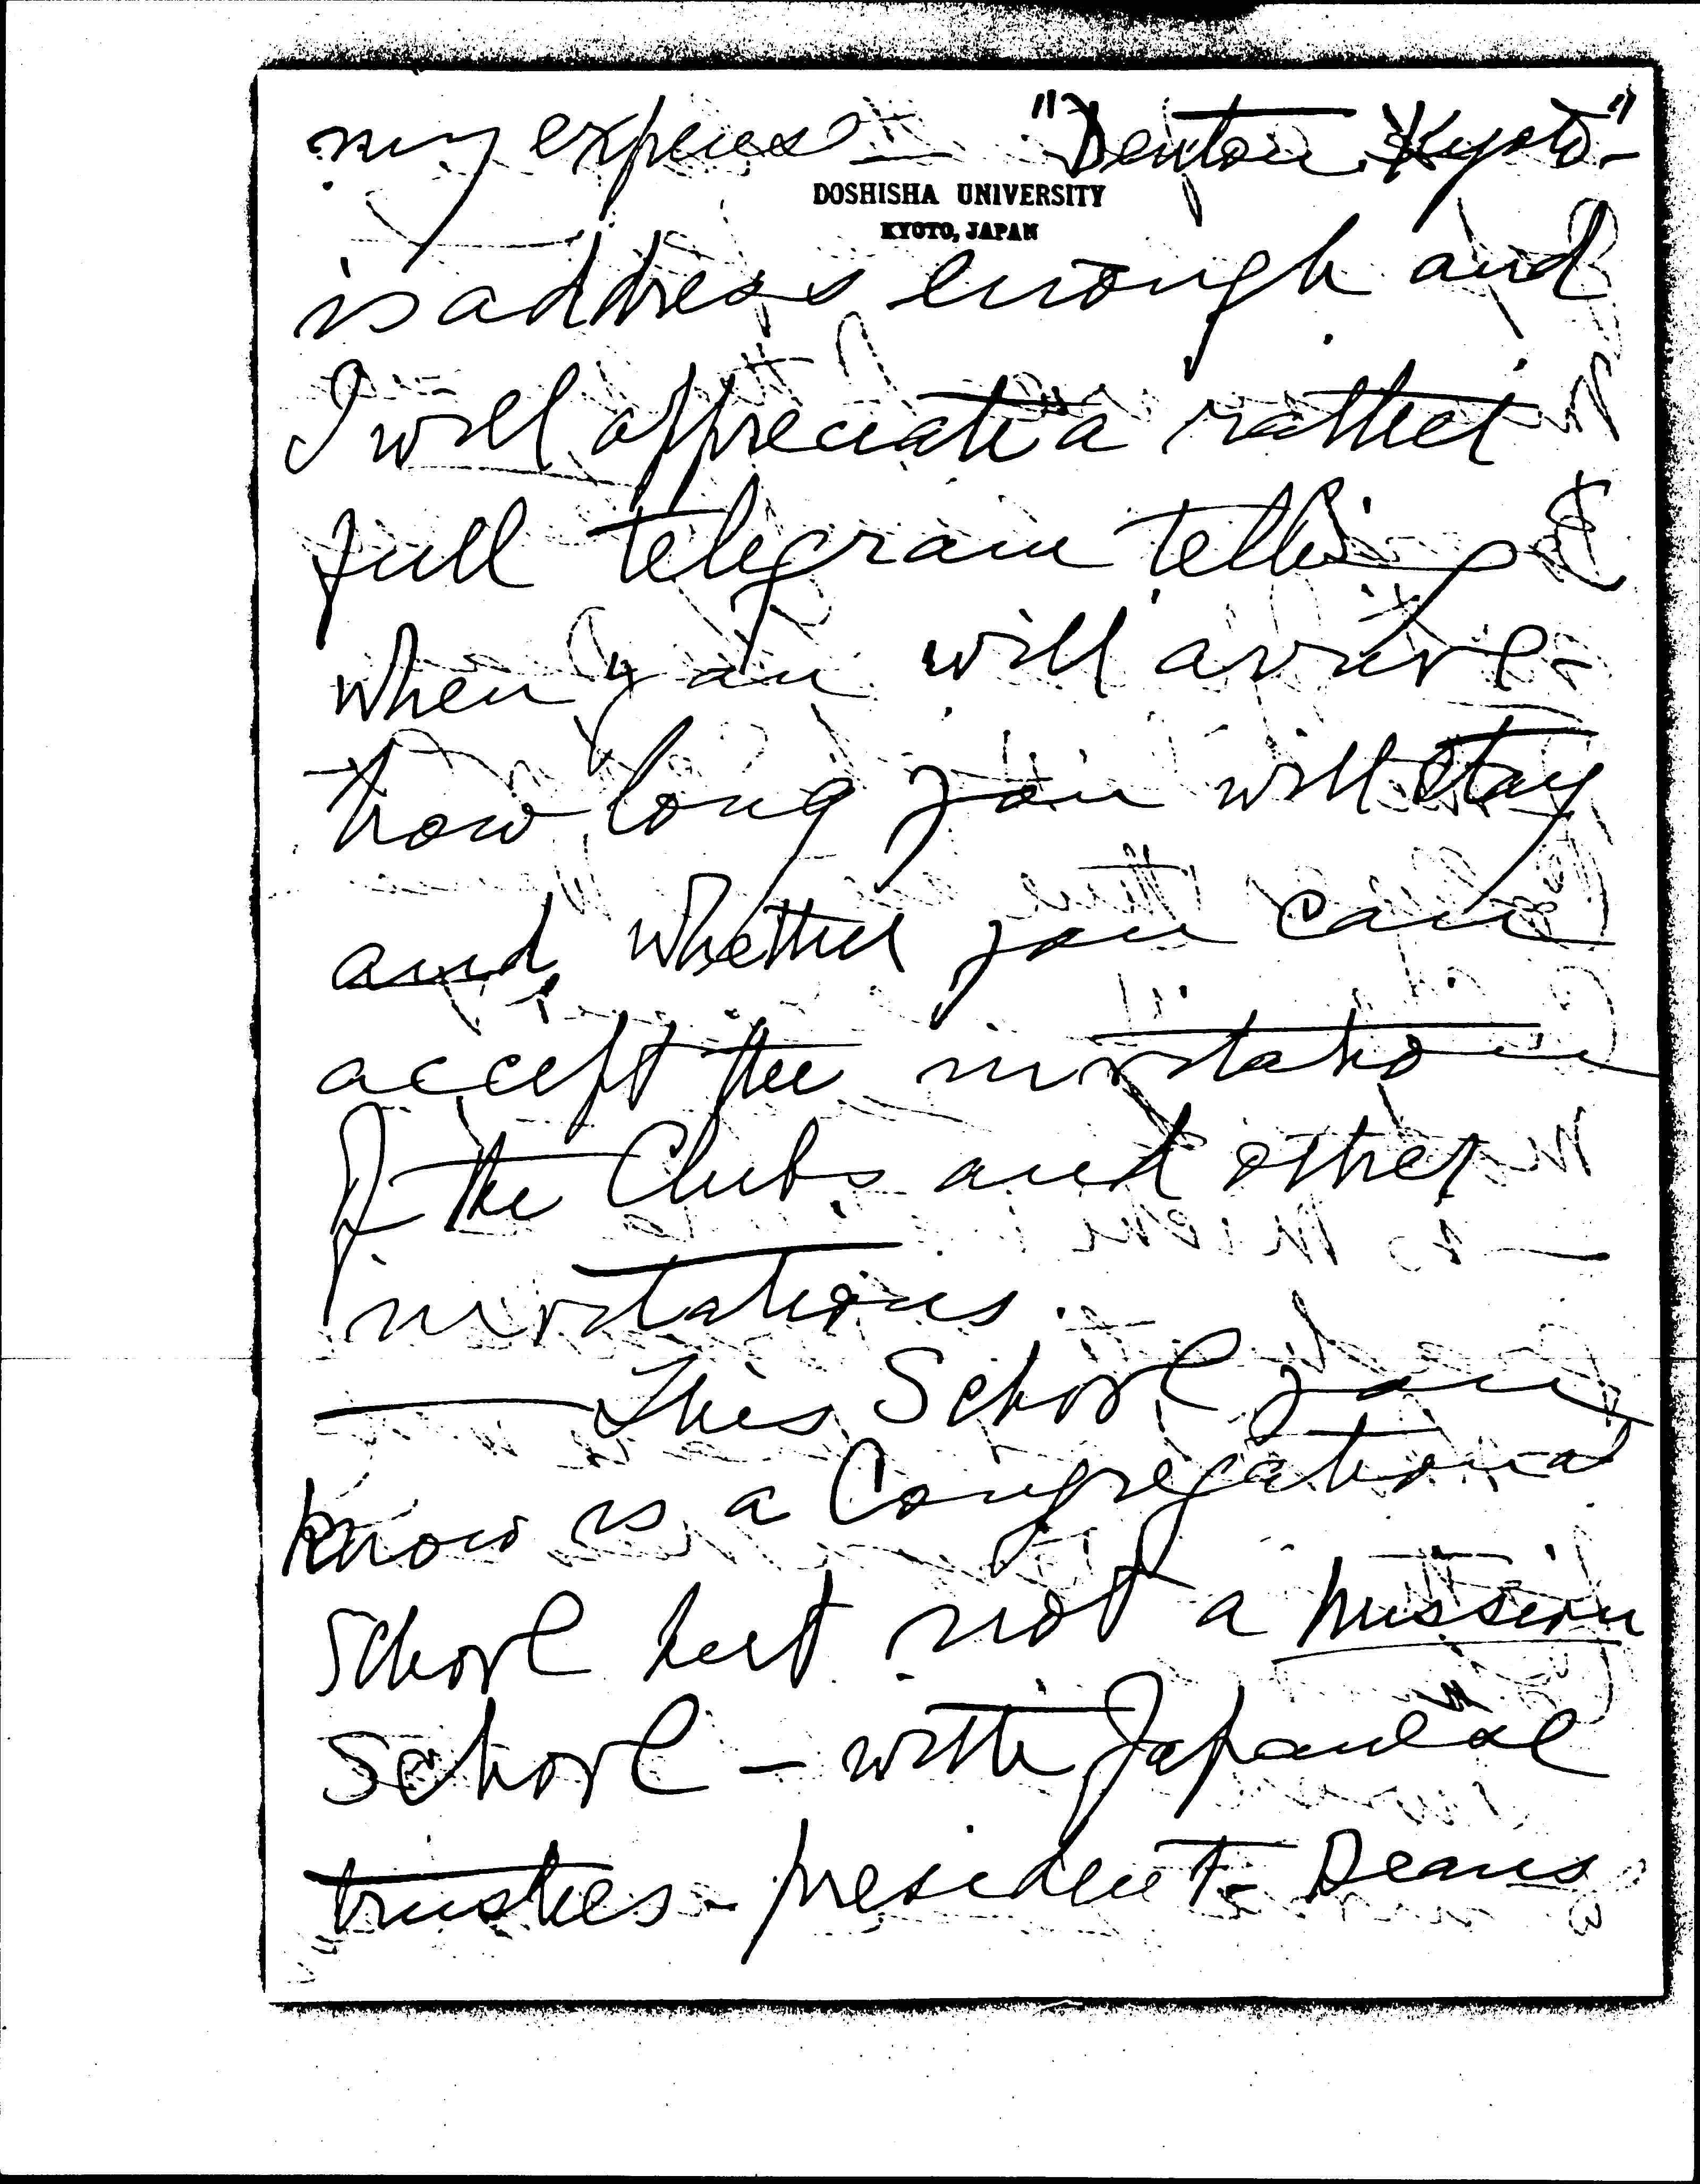 my expense — "Denton Kyoto"-
DOSHISHA UNIVERSITY
KYOTO, JAPAN
is address enough and
I will appreciate a rather
full telegram telling
when you will arrive-
how long you will stay
and whether you can
accept the invitation
of the Clubs and other
invitations.
— This School you
know is a Congregational
School but not a mission
School — with Japanese
trustees - president - Deans